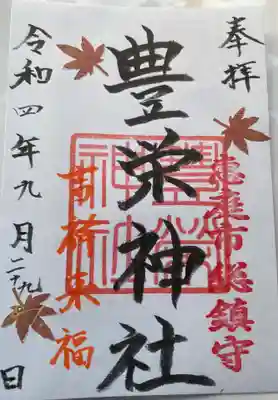 奉拝
恵庭市総鎮守
豊栄神社
来福
令和四年九月二十九日